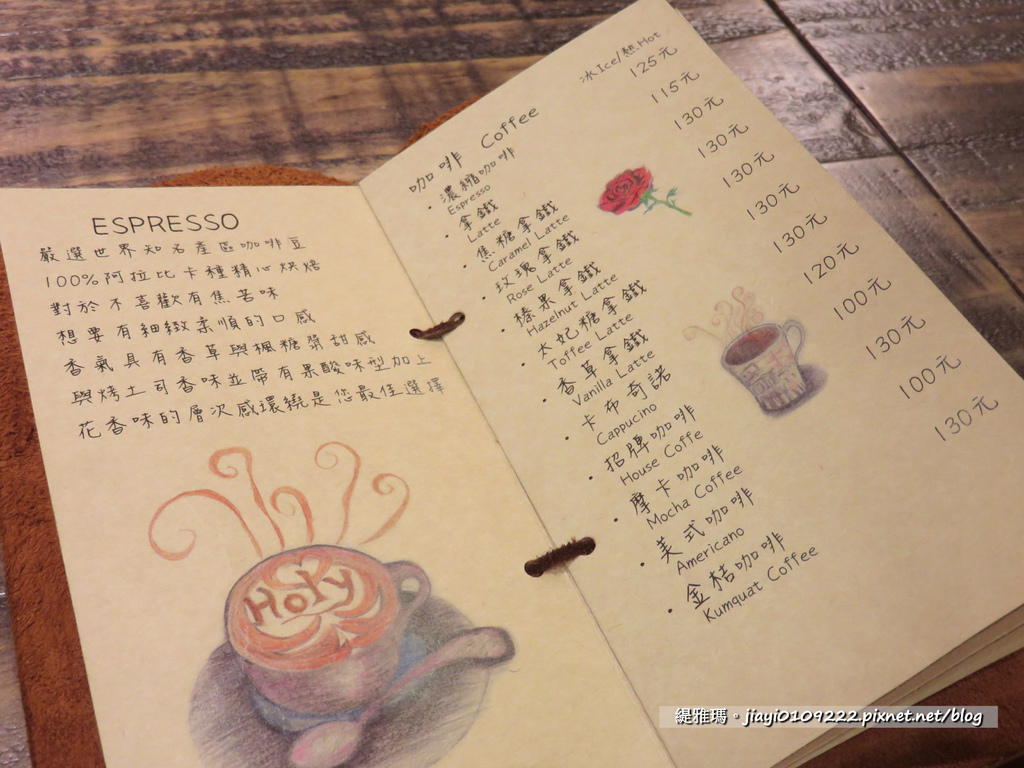 ESPRESSO
嚴選世界知名產區咖啡豆
100%阿拉比卡種精心烘焙
對於不喜歡有焦苦味
想要有細緻柔順的口感
香氣具有香草與楓糖漿甜感
與烤土司香味並帶有果酸味型加上
花香味的層次感環繞是您最佳選擇
Holy
咖啡 Coffee
冰Ice/熱Hot
・濃縮咖啡 125元
Espresso
・拿鐵 115元
Latte
・焦糖拿鐵 130元
Caramel Latte
・玫瑰拿鐵 130元
Rose Latte
・榛果拿鐵 130元
Hazelnut Latte
・太妃糖拿鐵 130元
Toffee Latte
・香草拿鐵 130元
Vanilla Latte
・卡布奇諾 120元
Cappucino
・招牌咖啡 100元
House Coffe
・摩卡咖啡 130元
Mocha Coffee
・美式咖啡 100元
Americano
・金桔咖啡 130元
Kumquat Coffee
緹雅瑪。jiayi0109222.pixnet.net/blog